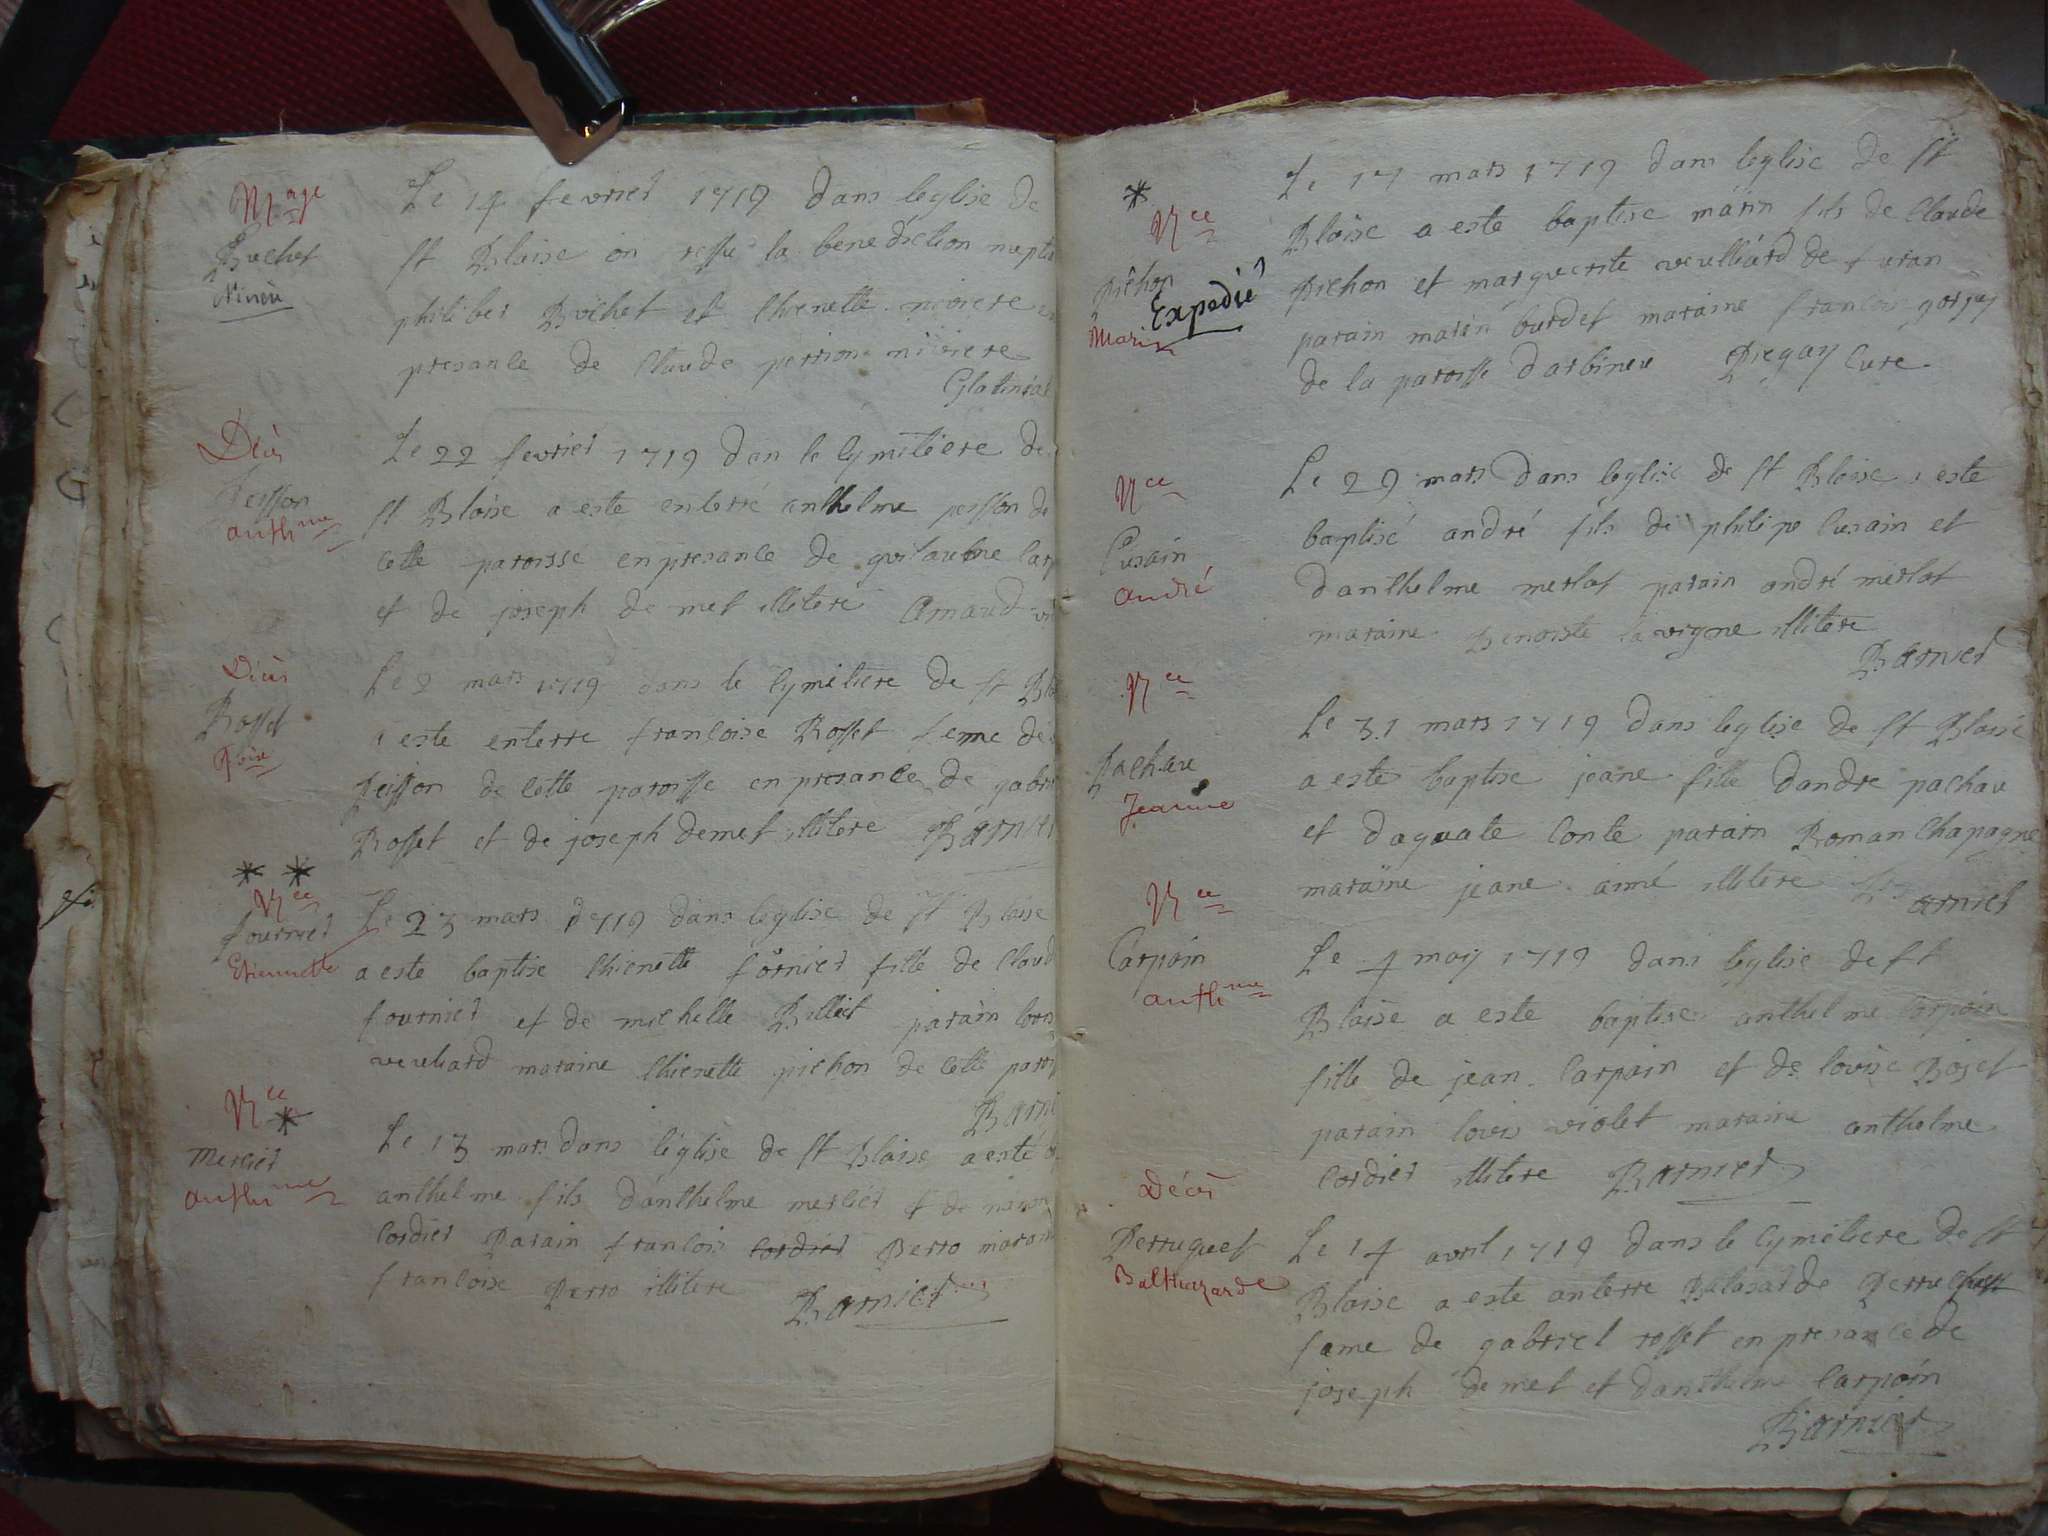 Mage
Buchet
Le 14 fevrier 1719 dans leglise de
st Blaise on ressu la benediction nuptia
philiber Buchet et thienette niviere en
presance de Claude perrion niviere
Décès
Peisson
Anthme
Le 22 fevrier 1719 dan le Cymitiere de
st Blaise a este enterré anthelme peisson de
cette paroisse en presance de guilaulme Carp
et de joseph de met illitere Arnaud vic
Décès
Rosset
Foise
Le 2 mars 1719 dans le Cymitiere de st Bla
a este enterre francoise Rosset feme de
peisson de cette paroisse en presance de gabri
Rosset et de joseph demet illitere Barnier
Nce
fournier
Etiennette
Le 23 mars 1719 dans leglise de st Blaise
a este baptise thienette fornier fille de Claud
fournier et de michelle Billiet parain louis
veuliard maraine thienette pichon de cette paroiss
Barni
Nce
Mercier
Anthme
Le 13 mars dans leglise de st Blaise a este
anthelme fils danthelme mercier et de
Cordier Parain francois cordier Perro marain
francoise Perro illitere Barnier
Nce
pichon
Expedié
Marin
Le 17 mars 1719 dans leglise de st
Blaise a este baptise marin fils de Claude
pichon et marguerite veulliard de furan
parain marin burdet maraine francoise gorjey
de la paroisse darbineu Piegay Cure
Nce
Cusain
André
Le 29 mars dans leglise de st Blaise a este
baptisé andré fils de philipe Cusain et
danthelme merlot parain andré merlot
maraine Benoiste lavigne illitere
Barnier
Nce
Pachau
Jeanne
Le 31 mars 1719 dans leglise de st Blaise
a este baptise jeane fille dandre pachau
et daguate Conte parain Roman Chapagne
maraine jeane aimé illitere Barnier
Nce
Carpain
Anthme
Le 4 may 1719 dans leglise de st
Blaise a este baptise anthelme Carpain
fille de jean Carpain et de louise Bojet
parain louis violet maraine anthelme
Cordier illitere Barnier
Décès
Perruquet
Balthazarde
Le 14 avril 1719 dans le Cymitiere de st
Blaise a este anterre Balasarde Perruchet
fame de gabriel rosset en presance de
joseph de met et danthelme Carpain
Barnier